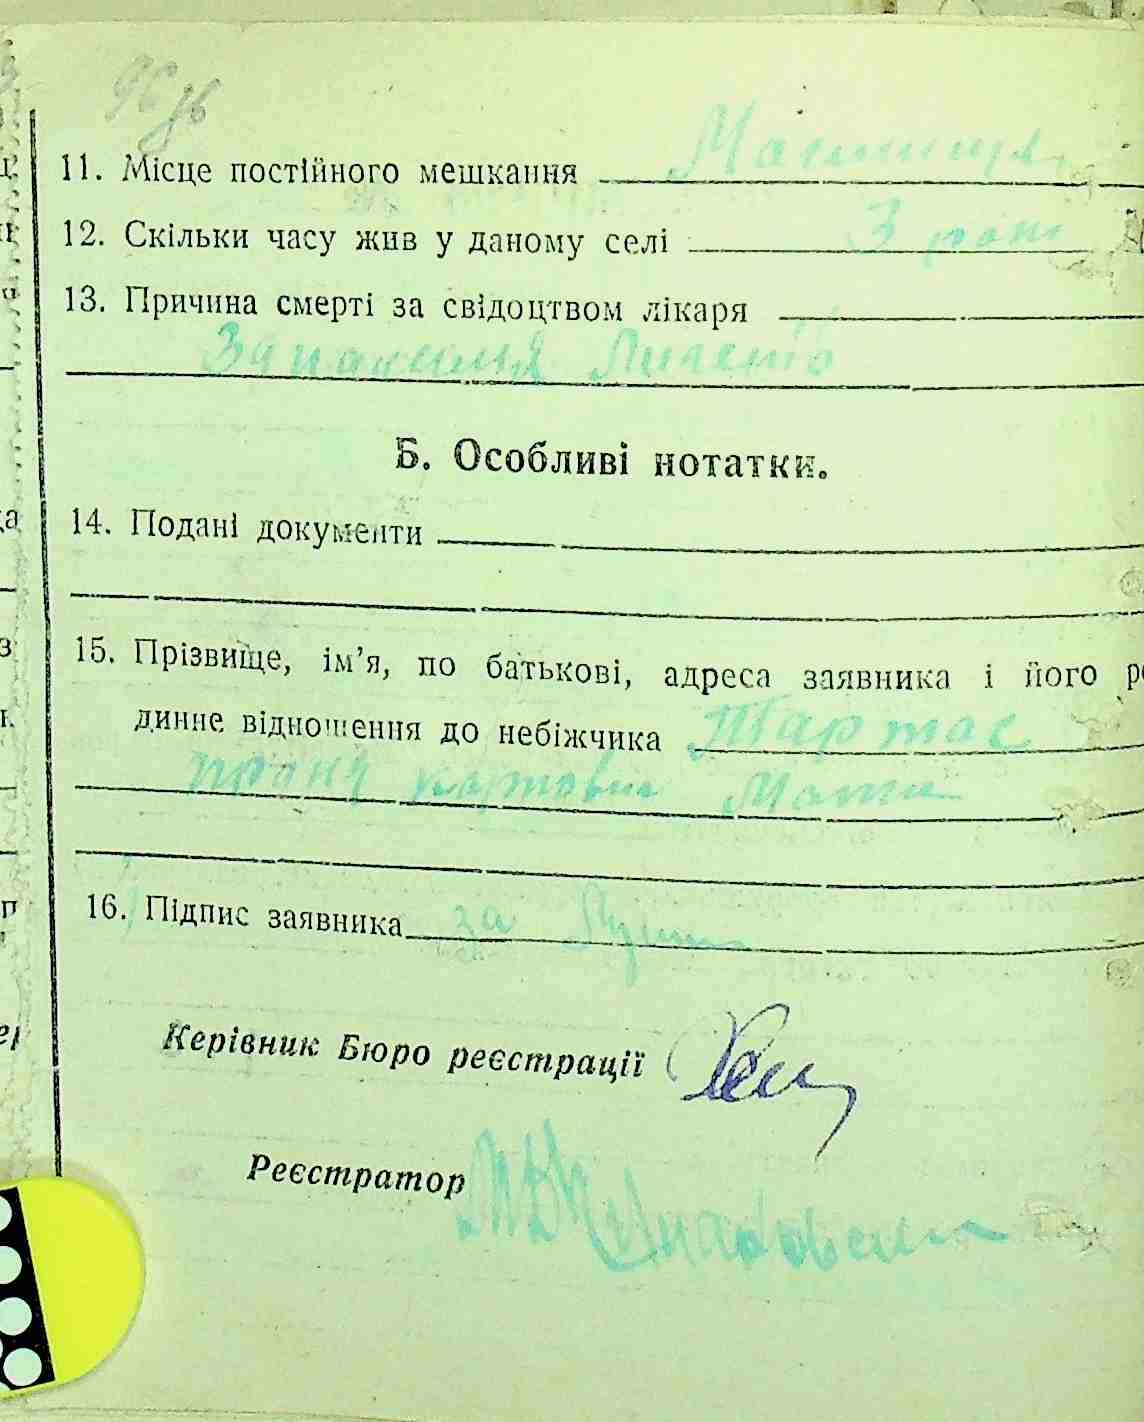 11. Місце постійного мешкання
12. Скільки часу жив у даному селі 3 роки
13. Причина смерті за свідоцтвом лікаря
Запалення Легенів
Б. Особливі нотатки.
14. Подані документи
15. Прізвище, ім’я, по батькові, адреса заявника і його ро
динне відношення до небіжчика Тартас
Мати
16. Підпис заявника за
Керівник Бюро реєстрації
Реєстратор